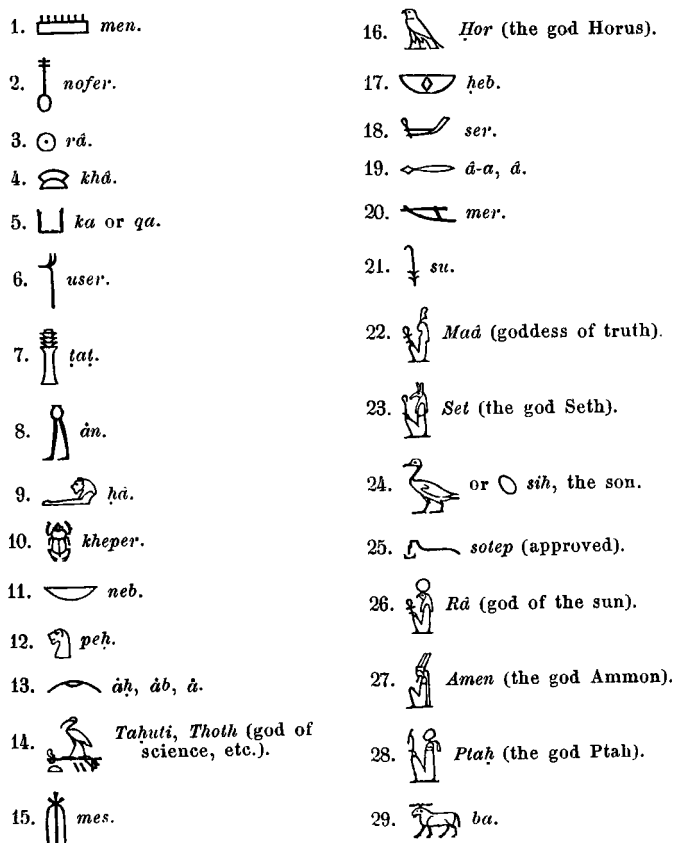 1. men.
2. nofer.
3. râ.
4. khâ.
5. ka or qa.
6. user.
7. ṭaṭ.
8. ȧn.
9. ḥâ.
10. kheper.
11. neb.
12. peḥ.
13. ȧḥ, ȧb, ȧ.
14. Taḥuti, Thoth (god of
science, etc.).
15. mes.
16. Ḥor (the god Horus).
17. ḥeb.
18. ser.
19. â-a, â.
20. mer.
21. su.
22. Maâ (goddess of truth).
23. Set (the god Seth).
24. or sih, the son.
25. sotep (approved).
26. Râ (god of the sun).
27. Amen (the god Ammon).
28. Ptaḥ (the god Ptah).
29. ba.